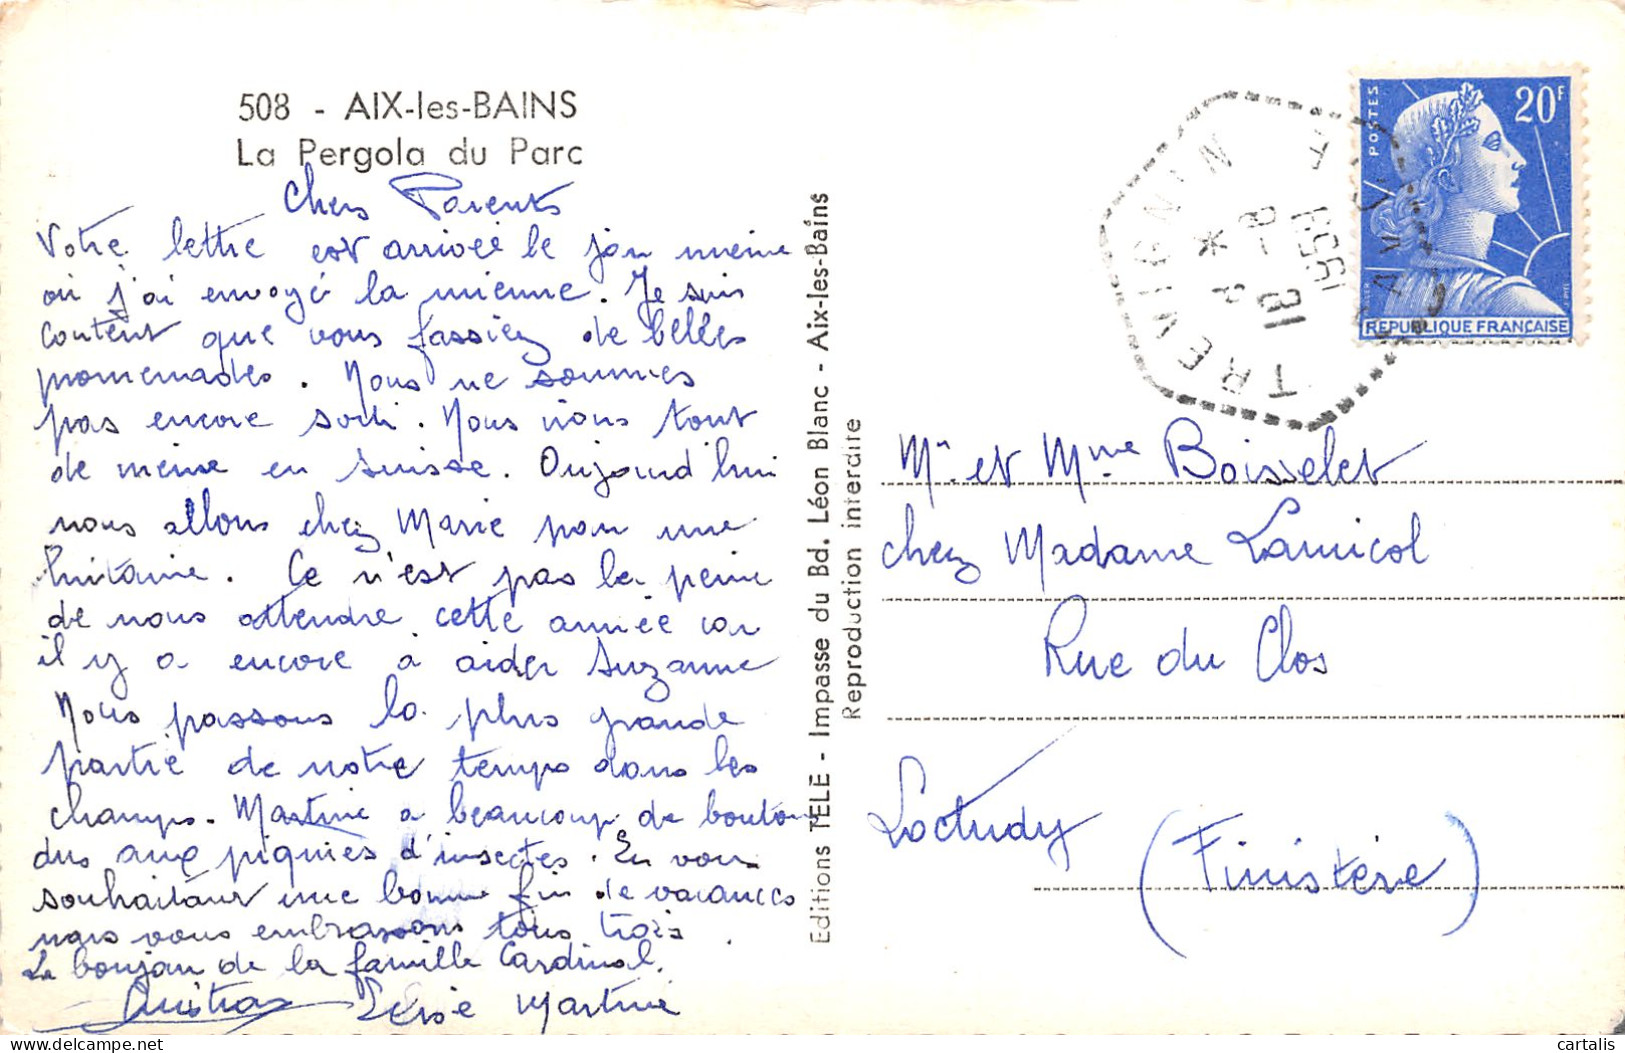 508 - AIX-les-BAINS
La Pergola du Parc
Chers Parents
Votre lettre est arrivée le jour même
où j'ai envoyé la mienne. Je suis
content que vous fassiez de belles
promenades. Nous ne sommes
pas encore sorti. Nous irons tout
de même en Suisse. Aujourd'hui
nous allons chez Marie pour une
huitaine. Ce n'est pas la peine
de nous attendre cette année car
il y a encore à aider Suzanne
Nous passons la plus grande
partie de notre temps dans les
champs. Martine a beaucoup de bouton
dus aux piqures d'insectes. En vous
souhaitant une bonne fin de vacances
nous vous embrassons tous trois.
Le bonjour de la famille Cardinal.
Martine
Editions TELE - Impasse du Bd. Léon Blanc - Aix-les-Bains
Reproduction interdite
POSTES
20F
REPUBLIQUE FRANÇAISE
TREVIGNIN
18 *
18 -8
1959
Mr et Mme Boisselet
chez Madame Lamicol
Rue du Clos
Loctudy
(Finistère)
cartalis
delcampe.net